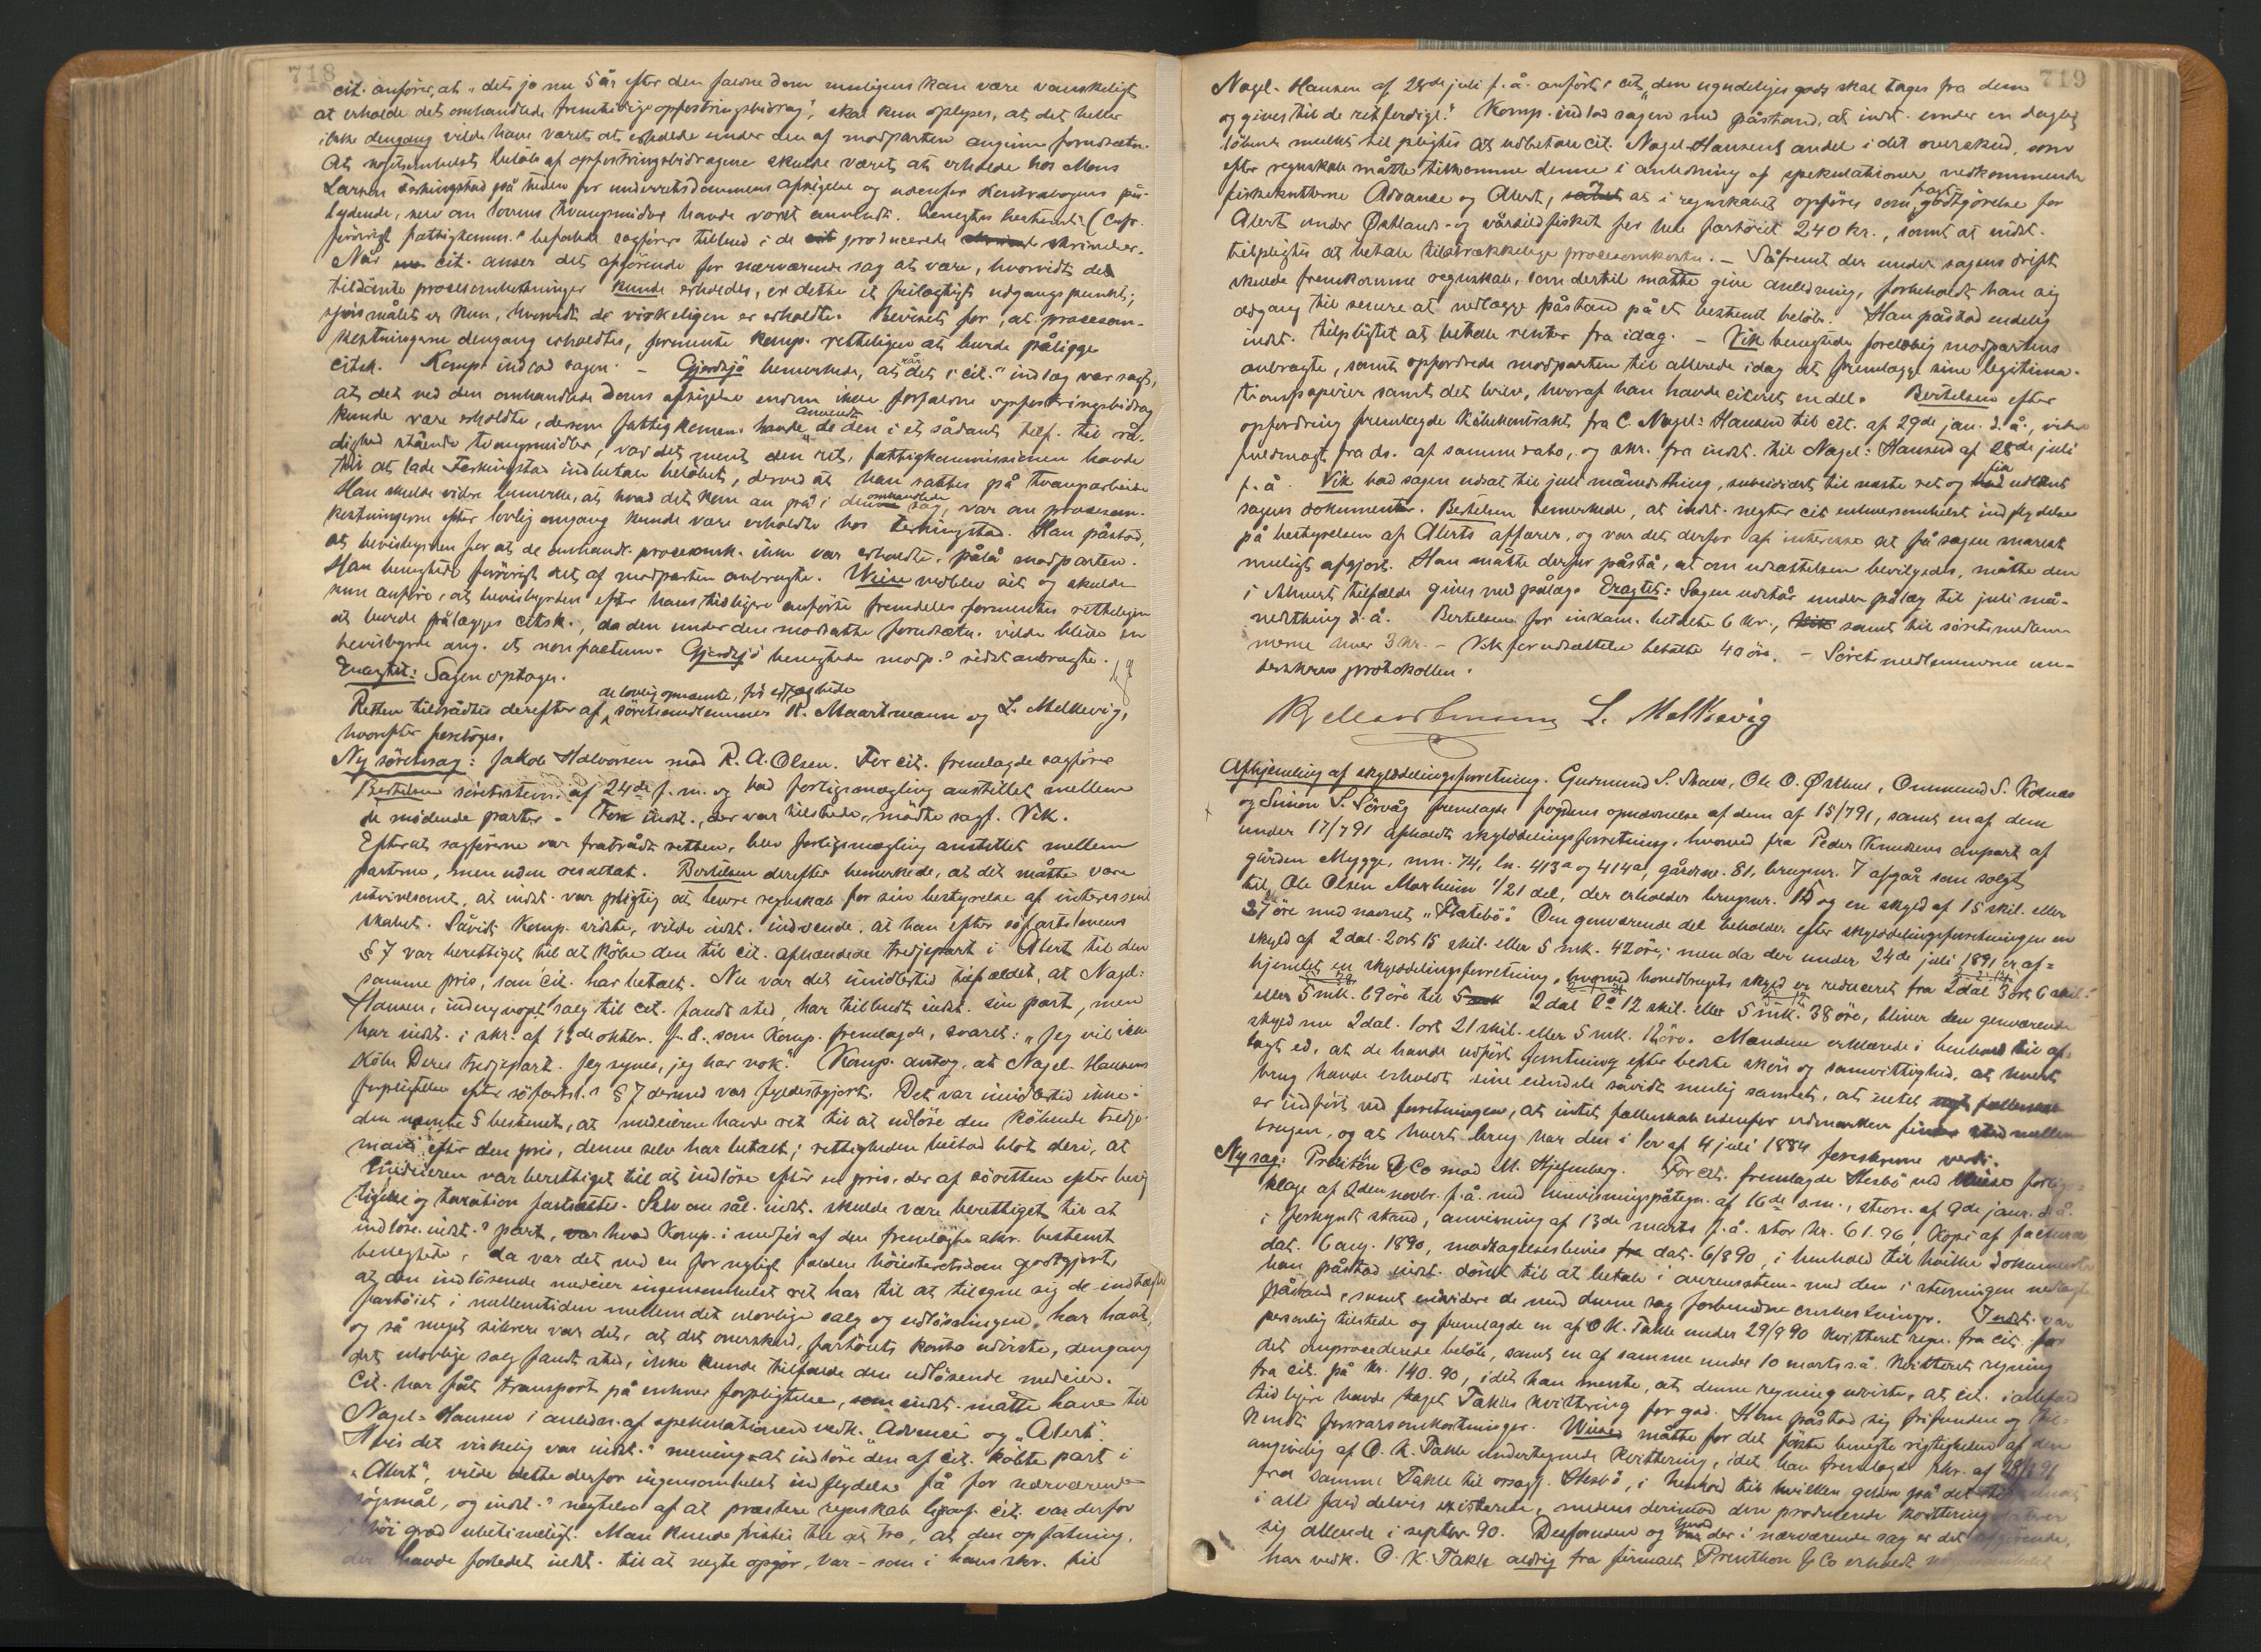 718
cit. anförer, at "det jo nu 5 år efter den faldne dom muligens kan være vanskeligt
at erholde det omhandlede fremtidige opfostringsbidrag", skal kun oplyses, at det heller
ikke dengang vilde have været at erholde under den af modparten angivne forudsætn.
At nogetsomhelst beløb af opfostringsbidragene skulde været at erholde hos Mons
Larsen Ferkingstad på tiden for underretsdommens afsigelse og udenfor kontrabogens på-
lydende, selv om lovens tvangsmidler havde været anvendt, benegtes bestemt. (Cofr.
forøvrigt fattigkomm.s befalede sagførers tilbud i de producerede skrivelser.
Når cit. anser det afgjørende for nærværende sag at være, hvorvidt de
tildömte procesomkostninger kunde erholdes, er dette et feilagtigt udgangspunkt;
spörsmålet er kun, hvorvidt de virkeligen er erholdte. Beviset for, at procesom-
kostningerne dengang erholdtes, formente komp. retteligen at burde påligge
citsk. Komp. indlod sagen. – Gjerdsjö bemerkede, at når det i cit.s indlæg var sagt,
at det ved den omhandlede doms afsigelse endnu ikke forfaldne opfostringsbidrag
kunde være erholdte, dersom fattigkomm. havde anvendt de den i et sådant tilf. til rå-
dighed stående tvangsmidler, var det ment den ret, fattigkommissionen havde
til at lade Ferkingstad indbetale beløbet, derved at han sattes på tvangsarbeide
Han skulde videre bemerke, at hvad det kom an på i den omhandlede sag, var om procesom-
kostningerne efter lovlig omgang kunde være erholdte hos Ferkingstad. Han påstod,
at bevisbyrden for at de omhandl. procesomk. ikke var erholdte, pålå modparten.
Han benegtede forövrigt det af modparten anbragte. Wiese vedblev sit og skulde
kun anføre, at bevisbyrden efter hans tidligere anførte fremdeles formentes retteligen
at burde pålægges citsk., da den under den modsatte forudsætn. vilde blive en
bevisbyrde ang. et non factum. Gjerdsjö benegtede modp.s sidst anbragte.
Eragtet: Sagen optages.
Retten tiltrådtes derefter af de lovlig opnævnte, før edfæstede söretsmedlemmer R. Maartmann og L. Melkevig,
hvorefter foretoges.
Ny söretssag: Jakob Halvorsen mod R. A. Olsen. For cit. fremlagde sagfører
Bertelsen söretsstevn. af 24de f. m. og bad forligsmægling anstillet mellem
de mødende parter. For indst., der var tilstede, mödte sagf. Vik.
Efterat sagförerne var fratrådt retten, blev forligsmægling anstillet mellem
parterne, men uden resultat. Bertelsen derefter bemerkede, at det måtte være
utvivlsomt, at indst. var pligtig at levere regnskab for sin bestyrelse af interessent
skabet. Såvidt komp. vidste, vilde indst. indvende, at han efter söfartslovens
§ 7 var berettiget til at köbe den til cit. afhændede tredjepart i Alert til den
samme pris, som cit. har betalt. Nu var det imidlertid tilfældet, at Nagel-
Hansen, inden noget salg til cit. fandt sted, har tilbudt indst. sin part, men
har indst. i skr. af 13de oktbr. f. å. som komp. fremlagde, svaret: "Jeg vil ikke
köbe Deres tredjepart. Jeg synes, jeg har nok." Komp. antog, at Nagel-Hansens
forpligtelse efter söfartsl.s § 7 dermed var fyldestgjort. Det var imidlertid ikke i
den nævnte § bestemt, at medeieren havde ret til at udlöse den köbende tredje-
mand efter den pris, denne selv har betalt; rettigheden bestod blot deri, at
medeieren var berettiget til at indlöse efter en pris, der af söretten efter besig
tigelse og taxation fastsættes. Selv om sål. indst. skulde være berettiget til at
indlöse indst.s part, hvad komp. i medför af den fremlagte skr. bestemt
benegtede, da var det ved en for nyligt falden höiesteretsdom godtgjort,
at den indlösende medeier ingensomhelst ret har til at tilegne sig de indtægter
fartöiet i mellemtiden mellem det ulovlige salg og udlösningen, har havt,
og så meget sikrere var det, at det overskud, fartöiets konto udviste, dengang
det ulovlige salg fandt sted, ikke kunde tilfalde den udlösende medeier.
Cit. har fåt transport på enhver forpligtelse, som indst. måtte have til
Nagel-Hansen i anledn. af spekulationen vedk. "Advance" og "Alert".
Hvis det virkelig var indst.s mening at indlöse den af cit. köbte part i
"Alert", vilde dette derfor ingensomhelst indflydelse få for nærværende
søgsmål, og indst.s negtelse af at præstere regnskab ligeoverf. cit. var derfor
i höi grad ubetimeligt. Man kunde fristes til at tro, at den opfatning,
der havde forledet indst. til at negte opgjör, var – som i hans skr. til
719
Nagel-Hansen af 28de juli f. å. anfört: cit. "den ugudeliges gods skal tages fra dem
og gives til de retferdige." Komp. indlod sagen med påstand, at indst. under en daglig
løbende mulkt tilpligtes at udbetale cit. Nagel-Hansens andel i det overskud, som
efter regnskab måtte tilkomme denne i anledning af spekulationen vedkommende
fiskekutterne Advance og Alert, at i regnskabet opføres som fragt godtgörelse for
Alert under Østlands- og vårsildfisket for hele fartöiet 240 kr., samt at indst.
tilpligtes at betale tilstrækkelige procesomkostn. – Såfremt der under sagens drift
skulde fremkomme regnskab, som dertil måtte give anledning, forbeholdt han sig
adgang til senere at nedlægge påstand på et bestemt beløb. Han påstod endelig
indst. tilpligtet at betale renter fra idag. – Vik benegtede foreløbig modpartens
anbragte, samt opfordrede modparten til allerede idag at fremlægge sine legitima-
tionspapirer samt det brev, hvoraf han havde citeret en del. Bertelsen efter
opfordring fremlagde köbekontrakt fra C. Nagel-Hansen til cit. af 29de jan. d. å., videre
fuldmagt fra ds. af samme dato, og skr. fra indst. til Nagel-Hansen af 28de juli
f. å. Vik bad sagen udsat til juli månedsthing, subsidiært til næste ret og udlånt
sagens dokumenter. Bertelsen bemerkede, at indst. negter cit enhversomhelst indflydelse
på bestyrelsen af Alerts affærer, og var det derfor af interesse at få sagen snarest
muligt afgjort. Han måtte derfor påstå, at om udsættelsen bevilgedes, måtte den
i ethvert tilfælde gives med pålæg. Eragtet: Sagen udstår under pålæg til juli må-
nedthing d. å. Bertelsen for inkam. betalte 6 kr., samt til söretsmedlem-
merne hver 3 kr. – Vik for udsættelse betalte 40 öre. – Söretsmedlemmerne un-
derskrev protokollen.
R Maartmann L. Melkevig
Afhjemling af skylddelingsforretning. Gudmund S. Skaar, Ole O. Østhus, Ommund S. Kolnes
og Simon S. Sörvåg fremlagde fogdens opnævnelse af dem af 15/7 91, samt en af dem
under 17/7 91 afholdt skylddelingsforretning, hvorved fra Peder Knudsens anpart af
gården Mygge, mn. 74, ln. 413a og 414a, gårdsnr. 81, brugsnr. 7 afgår som solgt
til Ole Olsen Marheim 1/21 del, der erholder brugsnr. 15 og en skyld af 15 skil. eller
27 öre med navnet "Flatebö". Den genværende del beholder efter skylddelingsforretningen en
skyld af 2 dal. 2 ort 15 skil. eller 5 mk. 42 öre; men da der under 24de juli 1891 er af-
hjemlet en skylddelingsforretning, hvorved hovedbrugets skyld er reduceret fra 2 dal 3 ort 6 skil.
eller 5 mk. 69 öre til 2 dal 2 o 12 skil. eller 5 mk. 38 öre, bliver den genværende
skyld nu 2 dal. 1 ort 21 skil. eller 5 mk. 12 öre. Mændene erklærede i henhold til af-
lagt ed, at de havde udført forretning efter bedste skjön og samvittighed, at hvert
brug havde erholdt sine eiendele såvidt mulig samlet, at intet
er indført ved forretningen, at intet fælleskab udenfor udmarken finder sted mellem
brugen, og at hvert brug har den i lov af 4 juli 1884 foreskrevne verdi.
Ny sag: Prenthon & Co mod M. Hjelmberg. For cit. fremlagde Hesbö ved Wiese forligs-
klage af 2den novbr. f. å. med henvisningspåtegn. af 16de s. m., stevn. af 9de janr. d. å.
i forkyndt stand, anvisning af 13de marts f. å. stor kr. 61.96, kopi af factura
dat. 6 aug. 1890, modtagelsesbevis dat. 6/8 90, i henhold til hvilke dokumenter
han påstod indst. dömt til at betale i overensstem. med den i stevningen nedlagte
påstand, samt endvidere de med denne sag forbundne omkostninger. Indst. var
personlig tilstede og fremlagde en af O. K. Takle under 29/9 90 kvitteret regn. fra cit. for
det omprocederede beløb, samt en af samme under 10 marts s. å. kvitteret regning
fra cit. på kr. 140.90, idet han mente, at denne regning udviste, at cit. i allefald
tidligere havde taget Takles kvittering for god. Han påstod sig frifunden og til-
kendt forsvarsomkostninger. Wiese måtte for det første benegte rigtigheden af den
angivelig af O. K. Takle undertegnede kvittering, idet han fremlagde skr. af 28/3 91
fra samme Takle til orsagf. Hesbö, i henhold til hvilken gjelden på det
i alle fald delvis existerede, medens derimod den producerede kvittering daterer
sig allerede i septbr. 90. Desforuden og hvad der i nærværende sag er det afgjørende,
har vedk. O. K. Takle aldrig fra firmaet Prenthon & Co erholdt